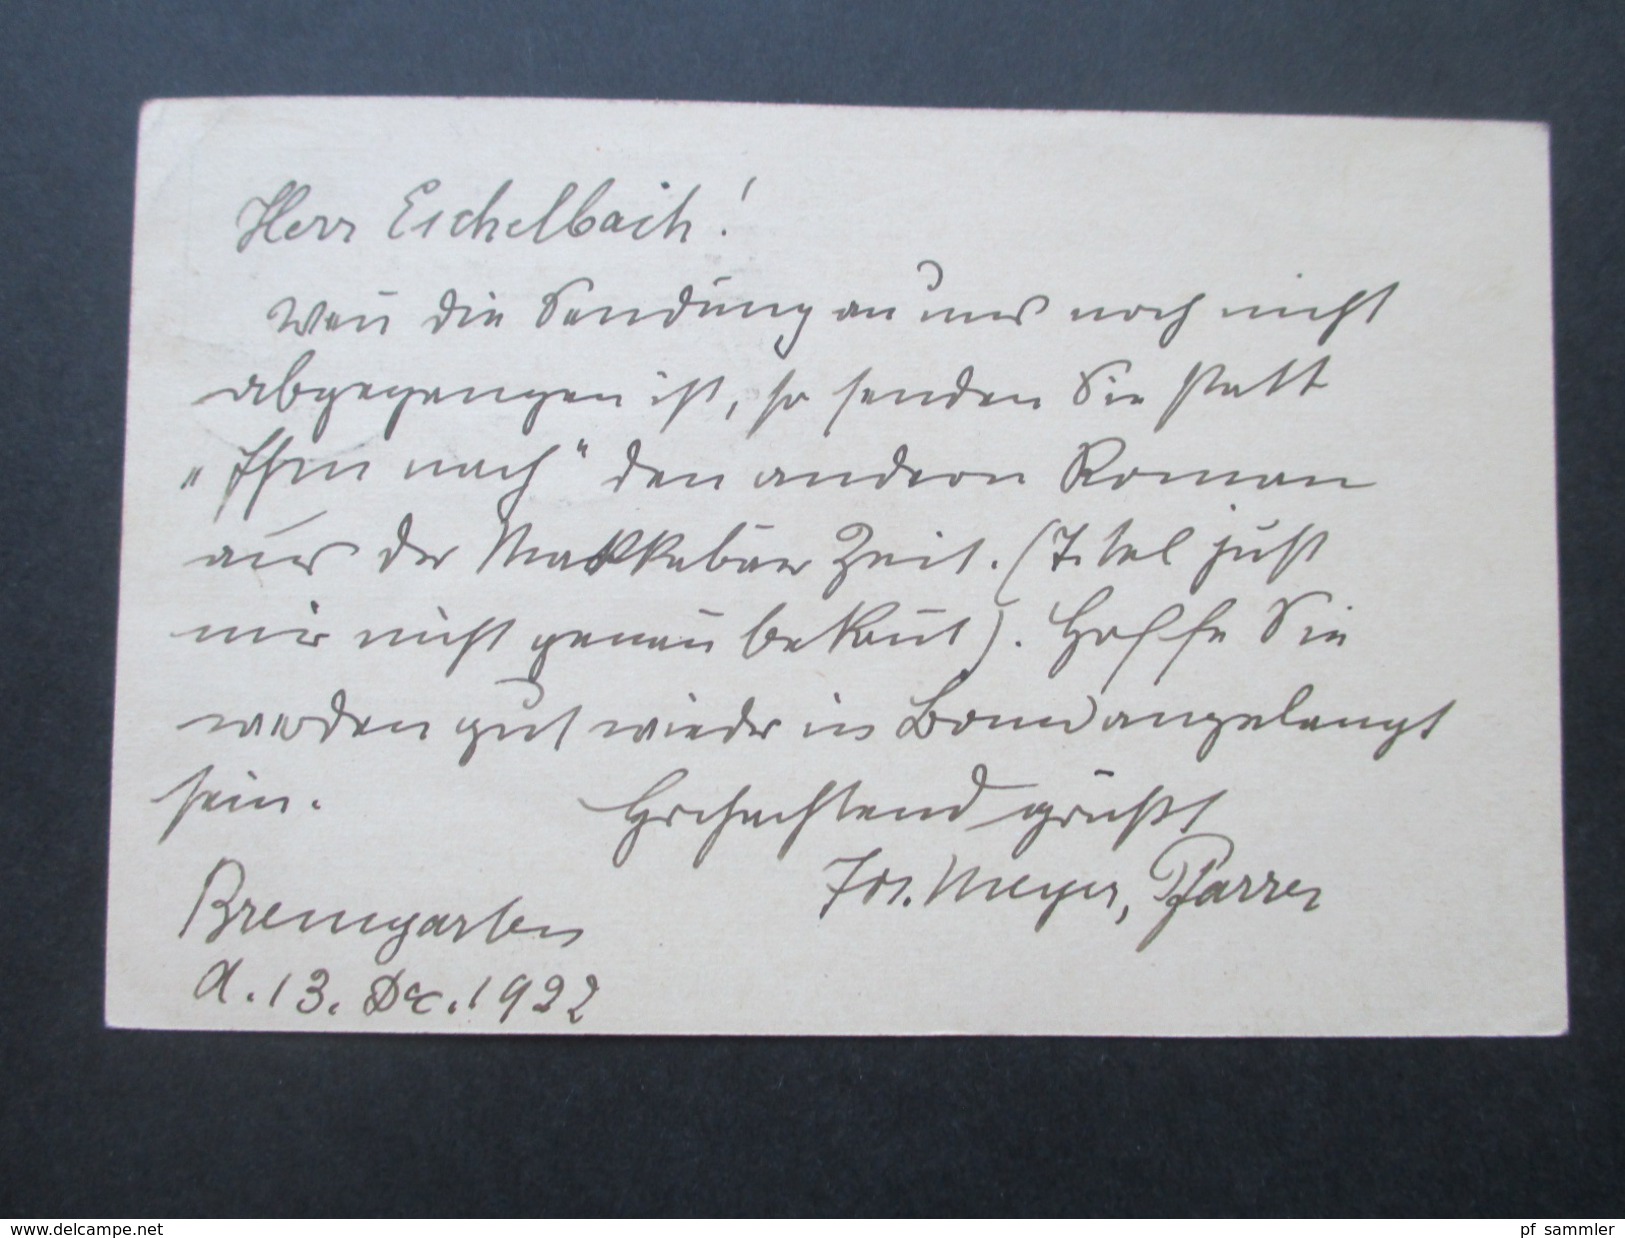 Herr Eichelbach!
Weñ die Sendung an uns noch nicht
abgegangen ist, so senden Sie statt
„Ihm nach" den andern Roman
aus der Makkabäer Zeit. (Titel just
mir nicht genau bekañt). Hoffe Sie
werden gut wieder in Bonn angelangt
sein.
Hochachtend grüßt
Jos. Meyer, Pfarrer
Bremgarten
d. 13. Dec. 1922
www.delcampe.net
pf_sammler